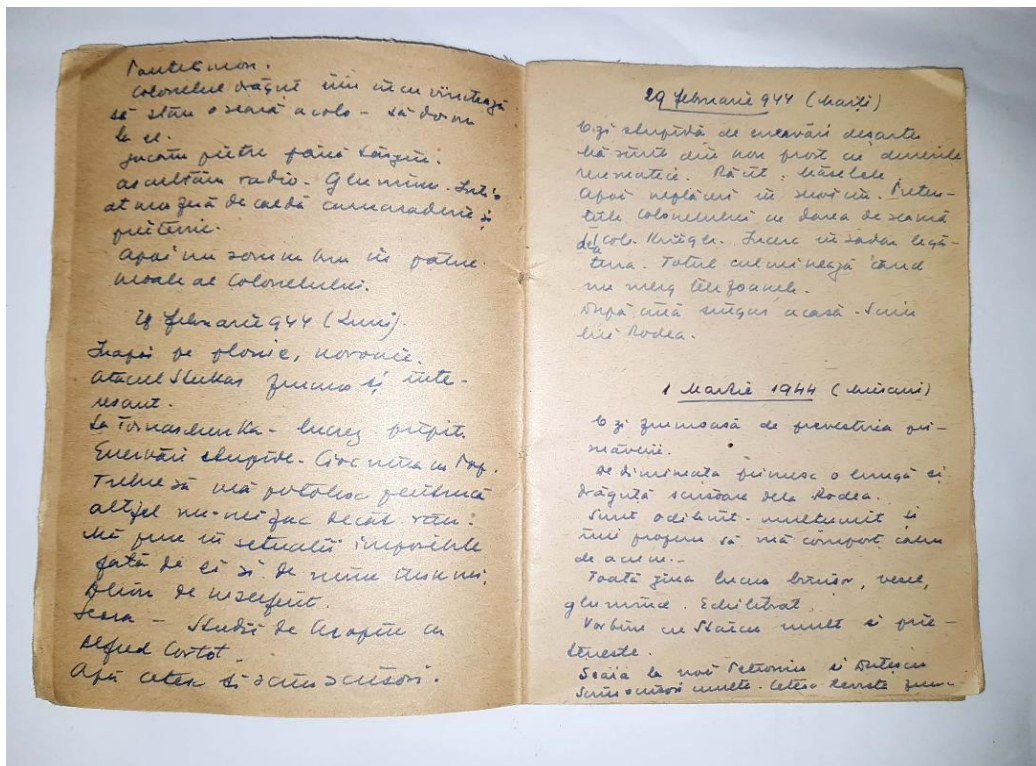 Pantelimon.
Colonelul drăguț îmi invitează
să stau o seară acolo - să dorm
la ei.
Jucăm pietre până târziu.
ascultăm radio. Glumim. Într'o
atmosferă de caldă camaraderie și
prietenie.
Apoi un somn bun în păturile
moale ale Colonelului.
28 februarie 944 (Luni).
Înapoi pe ploaie, noroaie.
Atacul Stukas frumos și inte-
resant.
La Tomaschenka - lucrez pripit.
Enervări stupide. Ciocnirea cu Pop.
Trebue să mă potolesc pentrucă
altfel nu-mi fac decât rău:
Mă pune în situații imposibile
față de ei și de mine însumi.
Seara - Studii de Chopin cu
Alfred Cortot.
Apoi citesc și scriu scrisori.
29 februarie 944 (Marți)
O zi stupidă de enervări deșarte
Mă simt din nou prost cu durerile
reumatice. Răcit. Măselele
Apoi neplăceri în serviciu.
Colonelului cu darea de seamă
dela col. Krüger. Încerc în zadar legă-
tura. Totul culminează când
nu merg telefoanele.
După aia singur acasă. Scriu
lui Rodea.
1 Martie 1944 (Miercuri)
O zi frumoasă de prevestirea pri-
măverii.
De dimineața primesc o lungă și
drăguță scrisoare dela Rodea.
Sunt odihnit - mulțumit și
îmi propun să mă comport calm
de acum.-
Toată ziua lucrez binișor, vesel,
glumind. Echilibrat.
Vorbim cu Stancu mult și prie-
tenește.
Seara la noi Petroniu și
Scriu scrisori multe. Citesc Revista